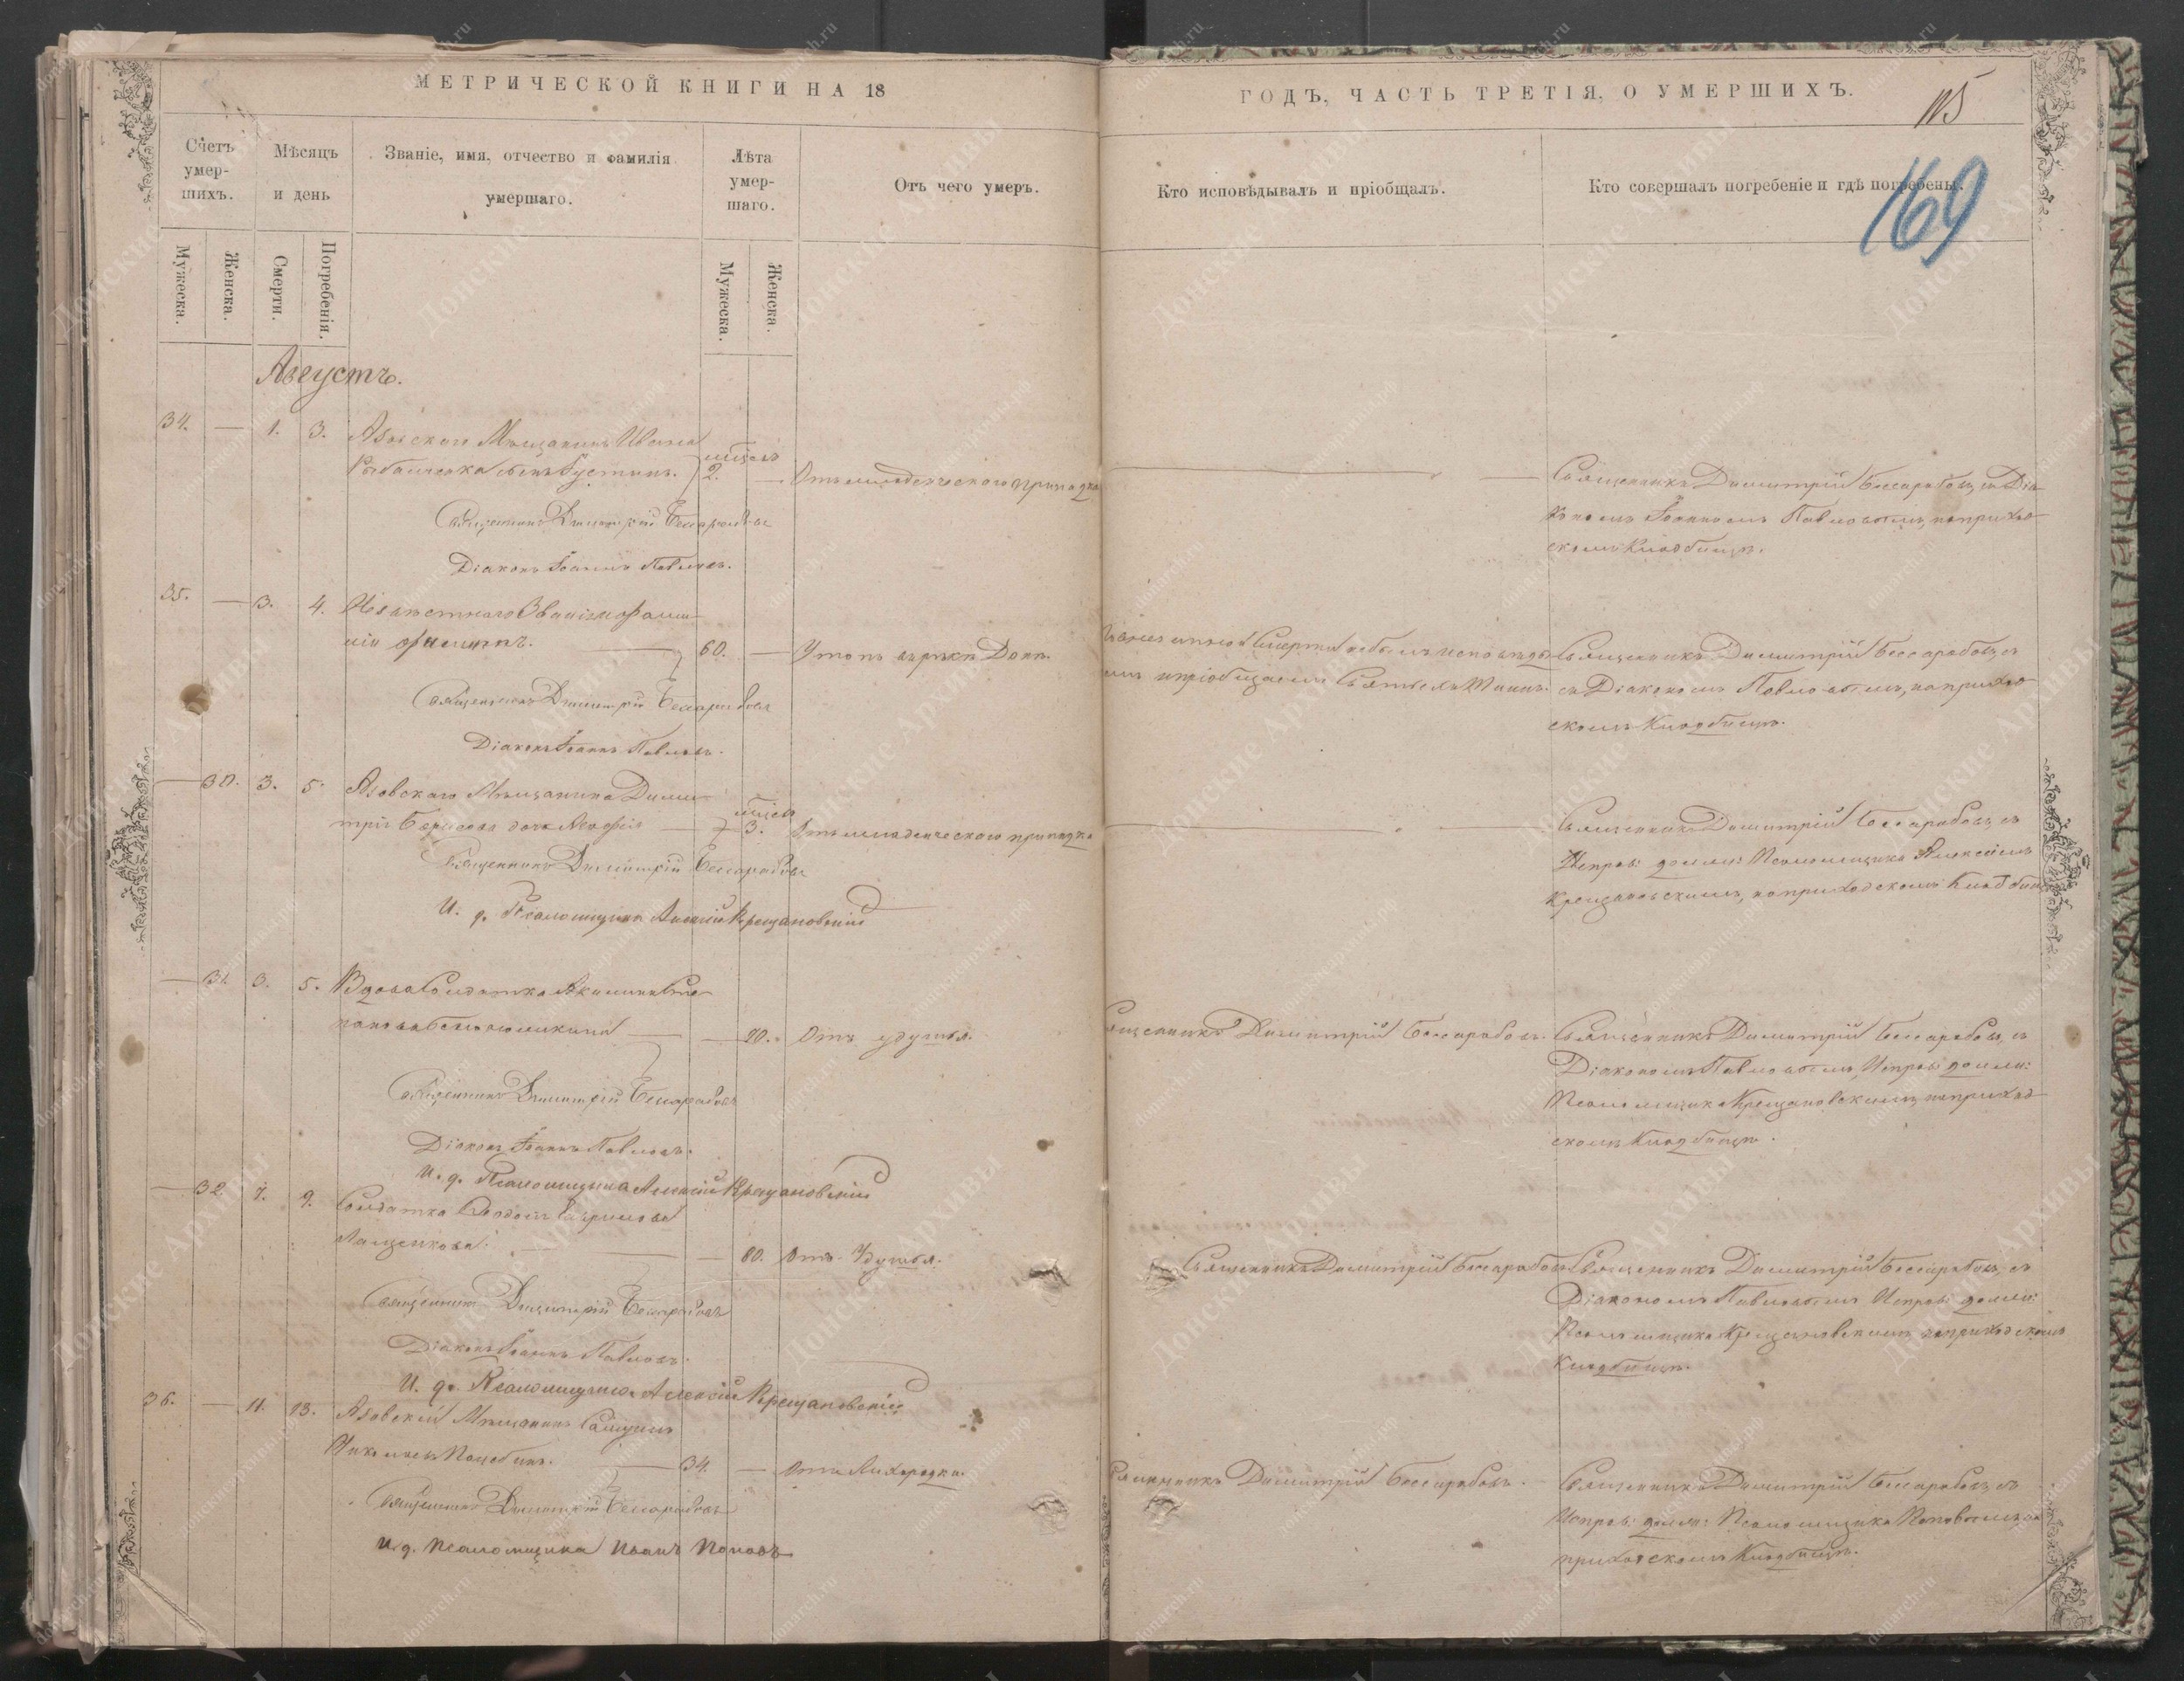 МЕТРИЧЕСКОЙ КНИГИ НА 18
ГОДЪ, ЧАСТЬ ТРЕТІЯ, О УМЕРШИХЪ.
115
169
Счетъ умер-шихъ.
Мѣсяцъ и день
Званіе, имя, отчество и фамилія умершаго.
Лѣта умер-шаго.
Отъ чего умеръ.
Кто исповѣдывалъ и пріобщалъ.
Кто совершалъ погребеніе и гдѣ погребены.
Мужеска.
Женска.
Смерти.
Погребенія.
Мужеска.
Женска.
Августъ.
34. — 1. 3. Азовскаго Мѣщанина Ивана
сынъ Густинъ. 2. — Отъ младенческаго припадка
Священникъ Димитрій Бессарабовъ, съ Діа-
кономъ Іоанномъ Павловымъ, на приход-
скомъ Кладбищѣ.
Священникъ Димитрій Бессарабовъ
Діаконъ Іоаннъ Павловъ.
35. — 3. 4. Званія и фами-
ліи 60. — Утопъ въ рѣкѣ Донѣ.
смерти небылъ исповѣды-
емъ и пріобщаемъ Святыхъ Таинъ.
Священникъ Димитрій Бессарабовъ, съ
съ Діакономъ Павловымъ, на приход-
скомъ Кладбищѣ.
Священникъ Димитрій Бессарабовъ
Діаконъ Іоаннъ Павловъ.
— 30. 3. 5. Азовскаго Мѣщанина Дими-
трія Борисова дочь 3. Отъ младенческаго припадка
Священникъ Димитрій Бессарабовъ, съ
Исправ: должн: Псаломщика Алексѣемъ
Крещановскимъ, на приходскомъ Кладбищ
Священникъ Димитрій Бессарабовъ
И. д. Псаломщика Алексѣй Крещановскій
— 31. 3. 5. Вдова Солдатка Акилина Сте-
панова — 90. Отъ удушья.
Священникъ Димитрій Бессарабовъ.
Священникъ Димитрій Бессарабовъ, съ
Діакономъ Павловымъ, Исправ: должн:
Псаломщика Крещановскимъ, на приход-
скомъ Кладбищѣ.
Священникъ Димитрій Бессарабовъ
Діаконъ Іоаннъ Павловъ.
И. д. Псаломщика Алексѣй Крещановскій
— 32. 7. 9. Солдатка Гаврилова
Лащенкова. — 80. Отъ Удушья.
Священникъ Димитрій Бессарабовъ
Священникъ Димитрій Бессарабовъ, съ
Діакономъ Павловымъ Исправ: должн:
Псаломщика Крещановскимъ, на приходскомъ
Кладбищѣ.
Священникъ Димитрій Бессарабовъ
Діаконъ Іоаннъ Павловъ.
И. д. Псаломщика Алексѣй Крещановскій
36. — 11. 13. Азовскій Мѣщанинъ
34. — Отъ Лихорадки.
Священникъ Димитрій Бессарабовъ.
Священникъ Димитрій Бессарабовъ, съ
Исправ: должн: Псаломщика Поповымъ, на
приходскомъ Кладбищѣ.
Священникъ Димитрій Бессарабовъ
И. д. Псаломщика Иванъ Поповъ